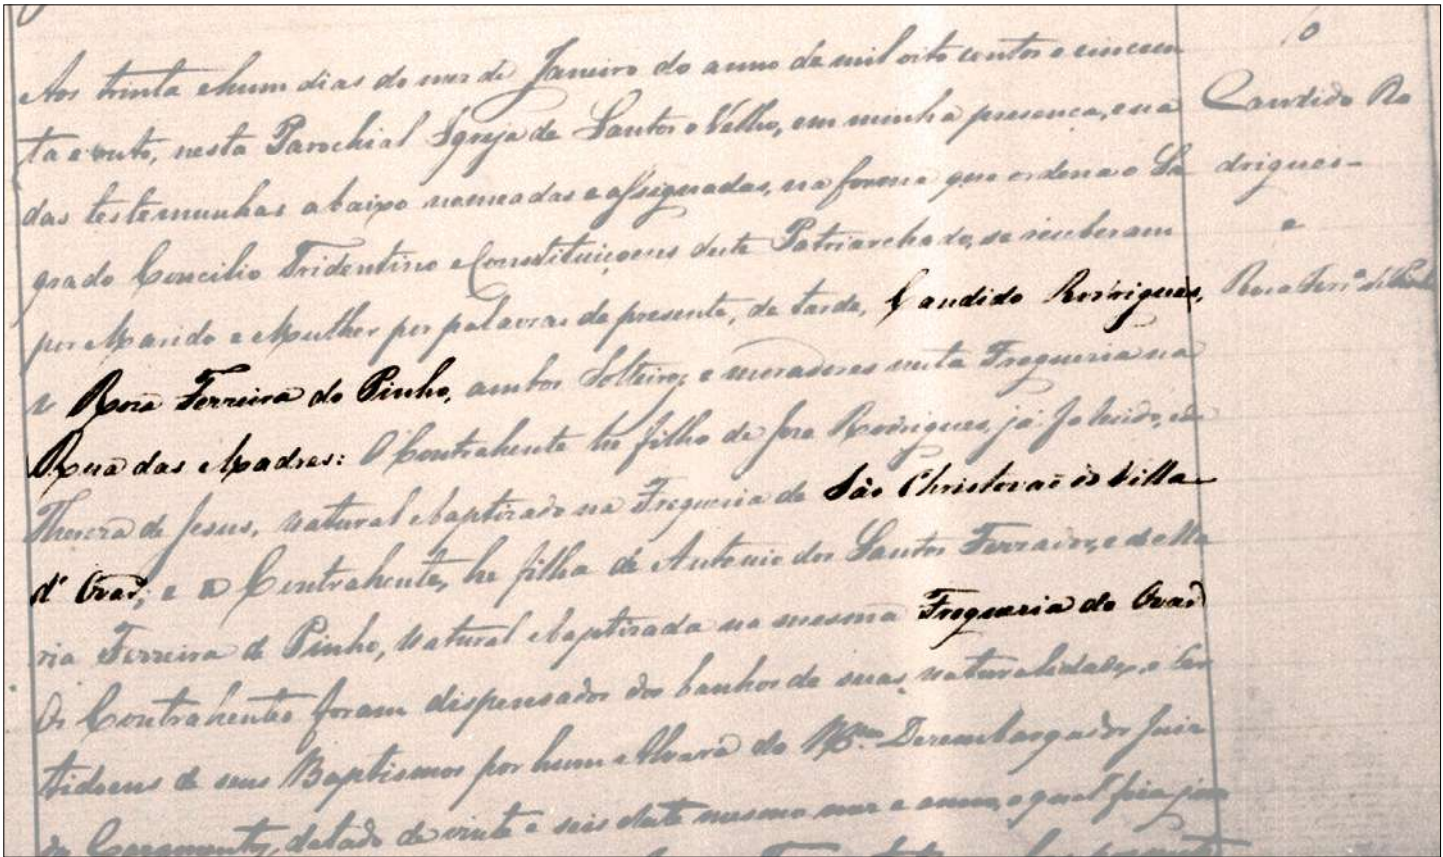 Aos trinta e hum dias do mez de Janeiro do anno de mil oito centos e cincoen
ta e outo, nesta Parochial Igreja de Santos o Velho, em minha presença, e na
das testemunhas abaixo nomeadas e assignadas, na forma que ordena o Sa
grado Concilio Tridentino e Constituiçoens deste Patriarchado, se receberam
por Marido e Mulher por palavras de presente, de tarde, Candido Rodrigues,
e Roza Ferreira de Pinho, ambos Solteiros, e moradores nesta Freguezia na
Rua das Madres: O Contrahente he filho de Jose Rodrigues, já falecido, e de
Thereza de Jesus, natural e baptizado na Freguezia de São Christovaõ da Villa
d' Ovar, e a Contrahente, he filha de Antonio dos Santos Ferrador, e de Ma
ria Ferreira de Pinho, natural e baptizada na mesma Freguezia de Ovar
Os Contrahentes foram dispensados dos banhos de suas naturalidades, e Cer
tidoens de seus Baptismos por hum Alvará do Dezembargador Juiz
de Cazamentos, datado de vinte e seis deste mesmo mez e anno, o qual fica
Candido Ro
drigues
e
Roza Ferrª de Pinho